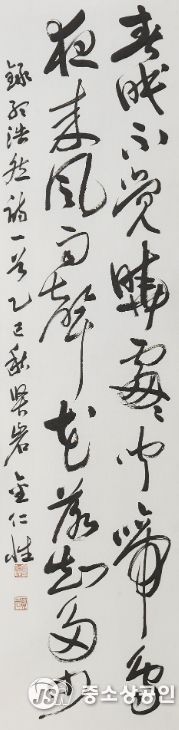 春眠不覺曉處々聞啼鳥
夜來風雨聲花落知多少
錄孟浩然詩一首乙巳秋賢岩金仁性
중소상공인